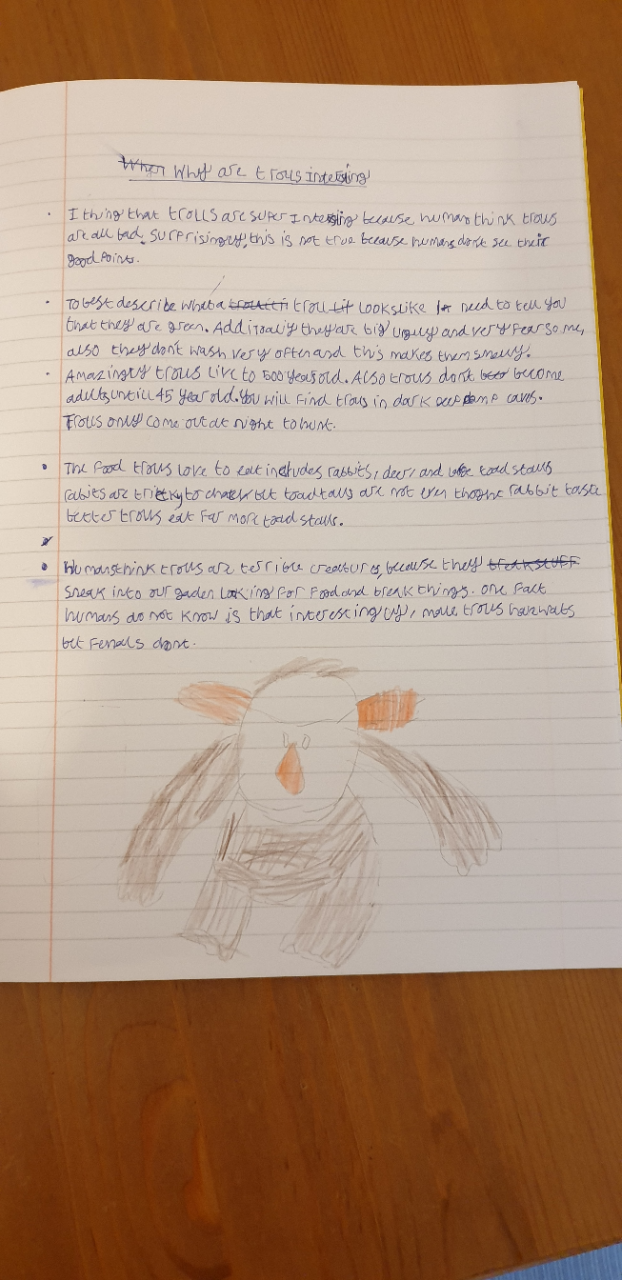 When Why are trolls interesting
I thing that trolls are super Interesting because humans think trolls
are all bad. Surprisingly, this is not true because humans don't see their
good points.
To best describe what a troll looks like I need to tell you
that they are green. Additinaly they are big ugly and very fearsome,
also they don't wash very often and this makes them smelly.
Amazingly trolls live to 500 years old. Also trolls don't become
adults untill 45 year old. You will find trolls in dark damp caves.
Trolls only come out at night to hunt.
The food trolls love to eat includes rabbits, deer, and toad stalls
rabits are tricky to but toadtalls are not even thoght rabbit taste
better trolls eat far more toad stalls.
Humans think trolls are terrible creaturs, because they break stuff
sneak into our garden looking for food and break things. One fact
humans do not know is that interestingly, male trolls have warts
but femals dont.